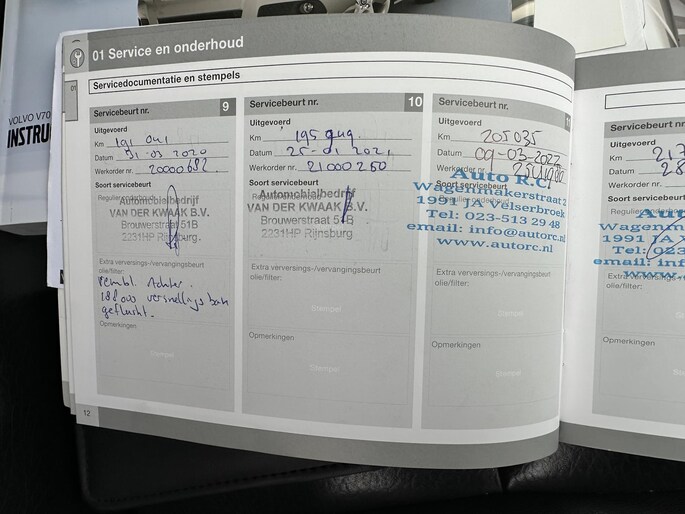 VOLVO V70
INSTRU
01 Service en onderhoud
01
Servicedocumentatie en stempels
Servicebeurt nr. 9
Uitgevoerd
Km 191 041
Datum 31-03 2020
Werkorder nr. 20000682
Soort servicebeurt
Regulier onderhoud
Automobielbedrijf
VAN DER KWAAK B.V.
Brouwerstraat 51B
2231HP Rijnsburg.
Extra verversings-/vervangingsbeurt
olie/filter:
rembl. Achter.
188000 versnellingsbak
geflusht.
Opmerkingen
Stempel
12
Servicebeurt nr. 10
Uitgevoerd
Km 195 949.
Datum 25-01 2021
Werkorder nr. 21000250
Soort servicebeurt
Automobielbedrijf
VAN DER KWAAK B.V.
Brouwerstraat 51B
2231HP Rijnsburg.
Extra verversings-/vervangingsbeurt
olie/filter:
Stempel
Opmerkingen
Stempel
Servicebeurt nr.
Uitgevoerd
Km 205035
Datum 09-03-2022
Werkorder nr.
Soort servicebeurt
Regulier onderhoud
Auto R.C.
Wagenmakerstraat 2
1991 JA Velserbroek
Tel: 023-513 29 48
email: info@autorc.nl
www.autorc.nl
Extra verversings-/vervangingsbeurt
olie/filter:
Stempel
Opmerkingen
Stempel
Servicebeurt nr.
Uitgevoerd
Km 217
Datum 28
Werkorder nr.
Soort servicebeurt
Regulier
Aut
Wagenm
1991 JA V
Tel: 0
email: inf
www.
Extra verversings-/
olie/filter:
Opmerkingen